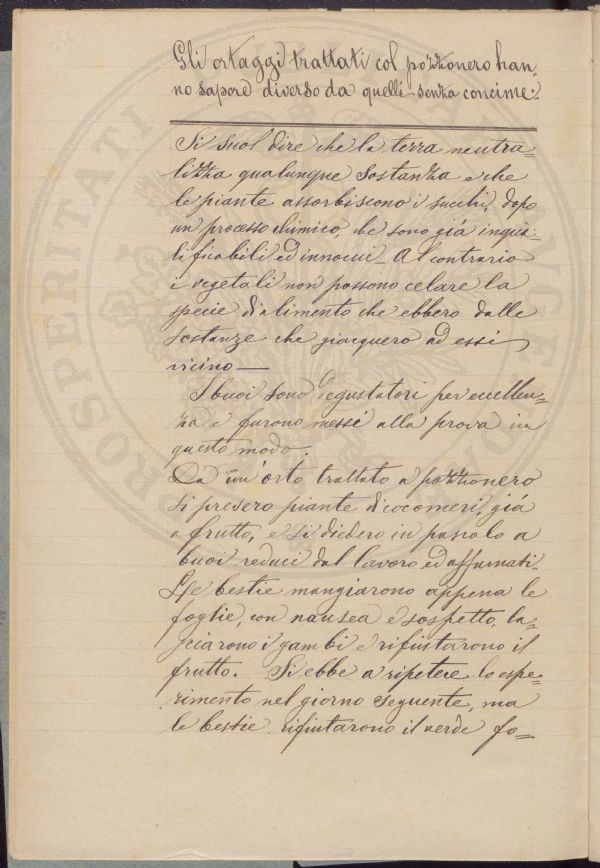 Gli ortaggi trattati col pozzonero han-
no sapore diverso da quelli senza concime.
Si suol dire che la terra neutra=
lizza qualunque sostanza e che
le piante assorbiscono i succhi, dopo
un processo chimico, che sono già inqua-
lificabili ed innocui. Al contrario
i vegetali non possono celare la
specie d'alimento che ebbero dalle
sostanze che giacquero ad essi
vicino —
I buoi sono degustatori per eccellen=
za e furono messi alla prova in
questo modo.
Da un'orto trattato a pozzonero
si presero piante di cocomeri, già
a frutto, e si diedero in pascolo a
buoi reduci dal lavoro ed affamati.
Le bestie mangiarono appena le
foglie, con nausea e sospetto, la=
sciarono i gambi e rifiutarono il
frutto. Si ebbe a ripetere lo espe=
rimento nel giorno seguente, ma
le bestie rifiutarono il verde fo=
PROSPERITATI